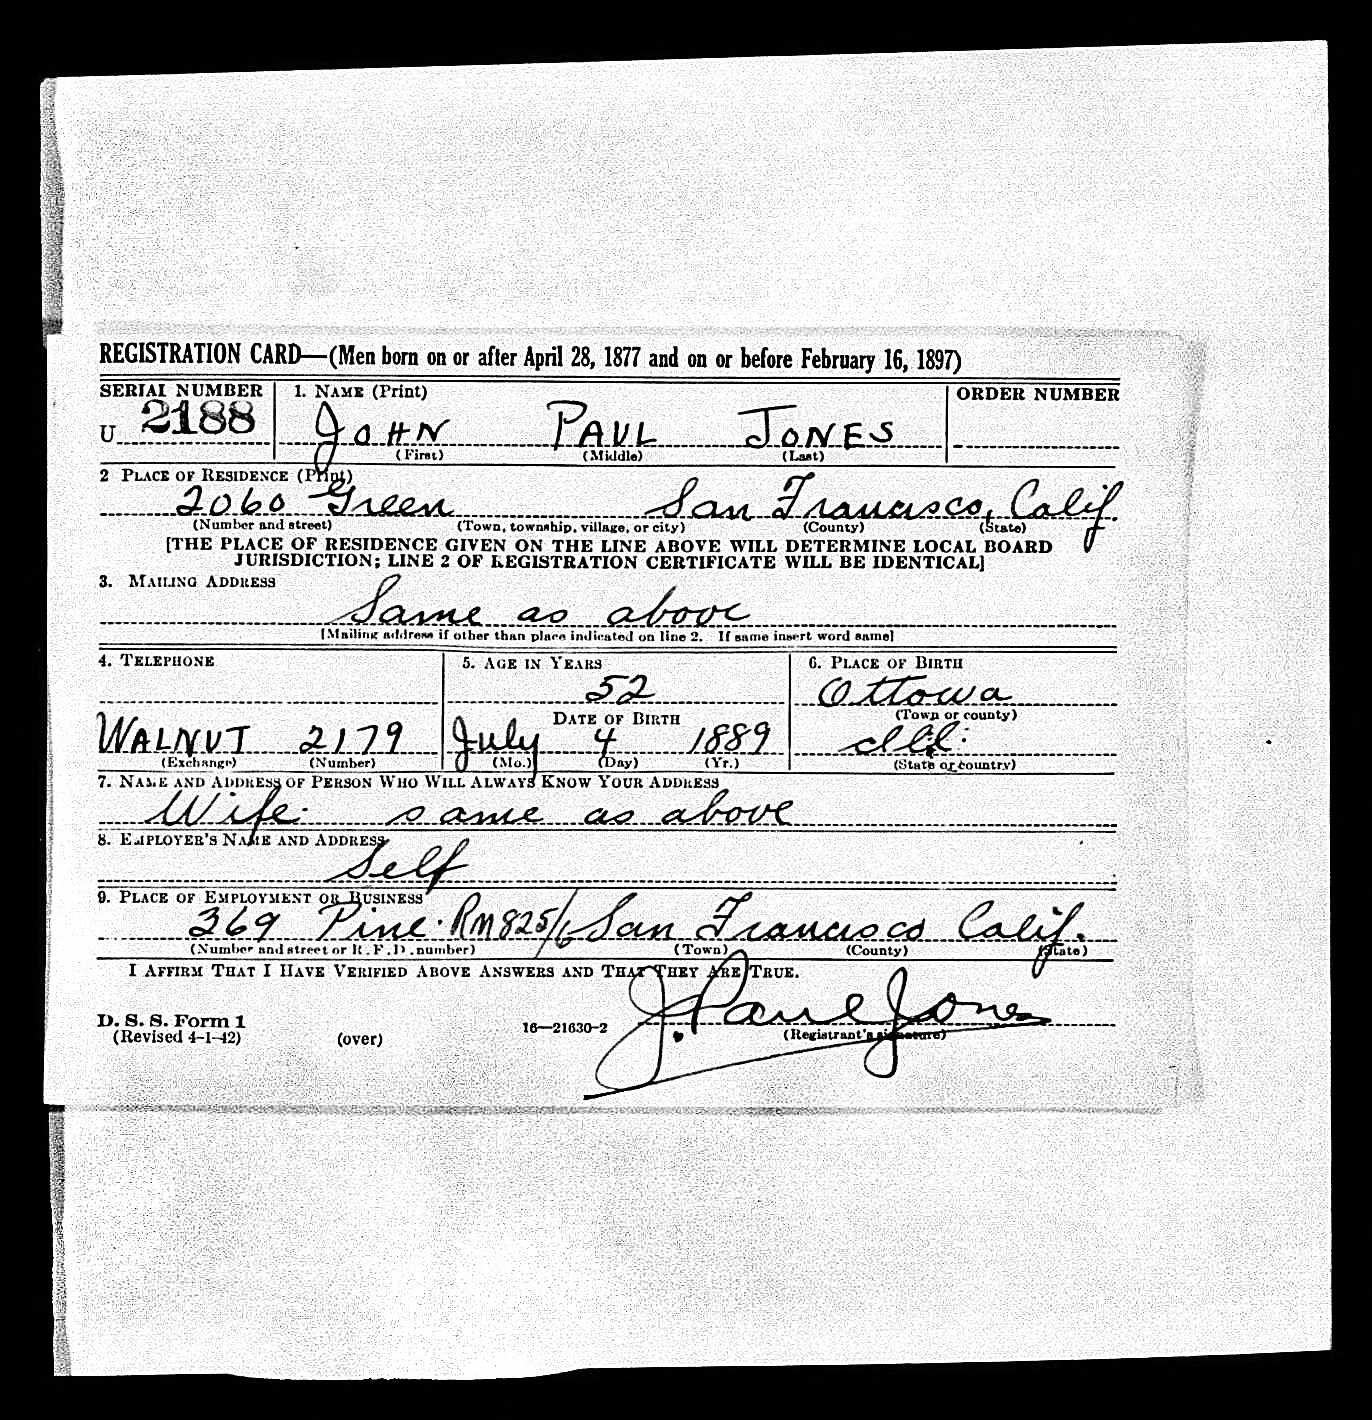 REGISTRATION CARD—(Men born on or after April 28, 1877 and on or before February 16, 1897)
SERIAL NUMBER 1. NAME (Print) ORDER NUMBER
U 2188 JOHN PAUL JONES
(First) (Middle) (Last)
2 PLACE OF RESIDENCE (Print)
2060 Green San Francisco, Calif.
(Number and street) (Town, township, village, or city) (County) (State)
[THE PLACE OF RESIDENCE GIVEN ON THE LINE ABOVE WILL DETERMINE LOCAL BOARD
JURISDICTION; LINE 2 OF REGISTRATION CERTIFICATE WILL BE IDENTICAL]
3. MAILING ADDRESS
Same as above
[Mailing address if other than place indicated on line 2. If same insert word same]
4. TELEPHONE 5. AGE IN YEARS 6. PLACE OF BIRTH
52 Ottowa
DATE OF BIRTH (Town or county)
WALNUT 2179 July 4 1889 Ill.
(Exchange) (Number) (Mo.) (Day) (Yr.) (State or country)
7. NAME AND ADDRESS OF PERSON WHO WILL ALWAYS KNOW YOUR ADDRESS
Wife. same as above
8. EMPLOYER'S NAME AND ADDRESS
Self
9. PLACE OF EMPLOYMENT OR BUSINESS
369 Pine. RM 825/6 San Francisco Calif.
(Number and street or R. F. D. number) (Town) (County) (State)
I AFFIRM THAT I HAVE VERIFIED ABOVE ANSWERS AND THAT THEY ARE TRUE.
J. Paul Jones
D. S. S. Form 1 16—21630-2 (Registrant's signature)
(Revised 4-1-42) (over)